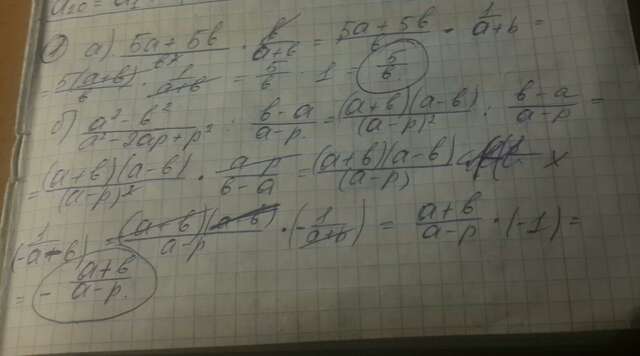 a₁₀ = a₁
② а) (5a+5b)/b² · b/(a+b) = (5a+5b)/b · 1/(a+b) =
= 5(a+b)/b · 1/(a+b) = 5/b · 1 = 5/b.
б) (a²-b²)/(a²-2ap+p²) : (b-a)/(a-p) = (a+b)(a-b)/(a-p)² : (b-a)/(a-p) =
= (a+b)(a-b)/(a-p)² · (a-p)/(b-a) = (a+b)(a-b)/(a-p) ×
(-1/(a-b)) = (a+b)(a-b)/(a-p) · (-1/(a-b)) = (a+b)/(a-p) · (-1) =
= - (a+b)/(a-p).